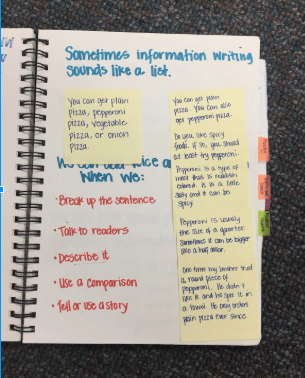 Sometimes information writing
sounds like a list.
You can get plain
pizza, pepperoni
pizza, vegetable
pizza, or onion
pizza.
When we:
• Break up the sentence
• Talk to readers
• Describe it
• Use a comparison
• Tell or use a story
You can get plain
pizza. You can also
get pepperoni pizza.
Do you like spicy
foods. If so, you should
at least try pepperoni.
Pepperoni is a type of
meat that is reddish
colored. It is a little
salty and it can be
spicy.
Pepperoni is usually
the size of a quarter.
Sometimes it can be bigger
like a half dollar.
One time my brother tried
a round piece of
pepperoni. He didn't
like it and he spit it in
a towel. He only orders
plain pizza ever since.